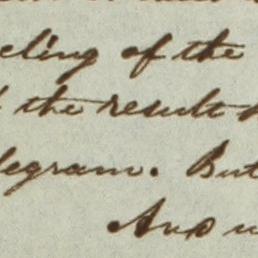 eling of the
the result
legram. But
And